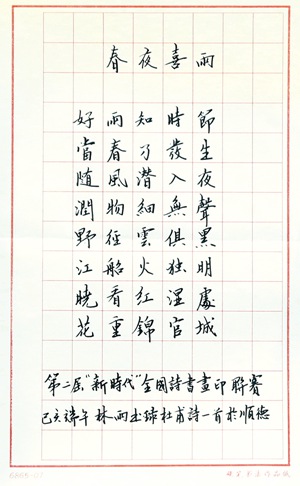 春夜喜雨
好雨知時節
當春乃發生
随風潛入夜
潤物細無聲
野徑雲俱黑
江船火独明
曉看红湿處
花重錦官城
第二届“新時代”全國詩書畫印聯賽
己亥端午林雨書録杜甫詩一首於順德